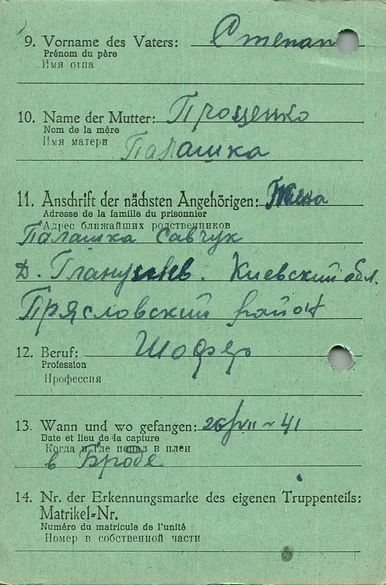 9. Vorname des Vaters: Степан
Prénom du père
Имя отца
10. Name der Mutter: Прощенко
Nom de la mère
Имя матери
Палашка
11. Anschrift der nächsten Angehörigen: Жена
Adresse de la famille du prisonnier
Адрес ближайших родственников
Палашка Савчук
Д. Киевский обл.
район
12. Beruf: Шофер
Profession
Профессия
13. Wann und wo gefangen: 26/VII - 41
Date et lieu de la capture
Когда и где попал в плен
в Броде
14. Nr. der Erkennungsmarke des eigenen Truppenteils:
Matrikel-Nr.
Numéro du matricule de l'unité
Номер в собственной части